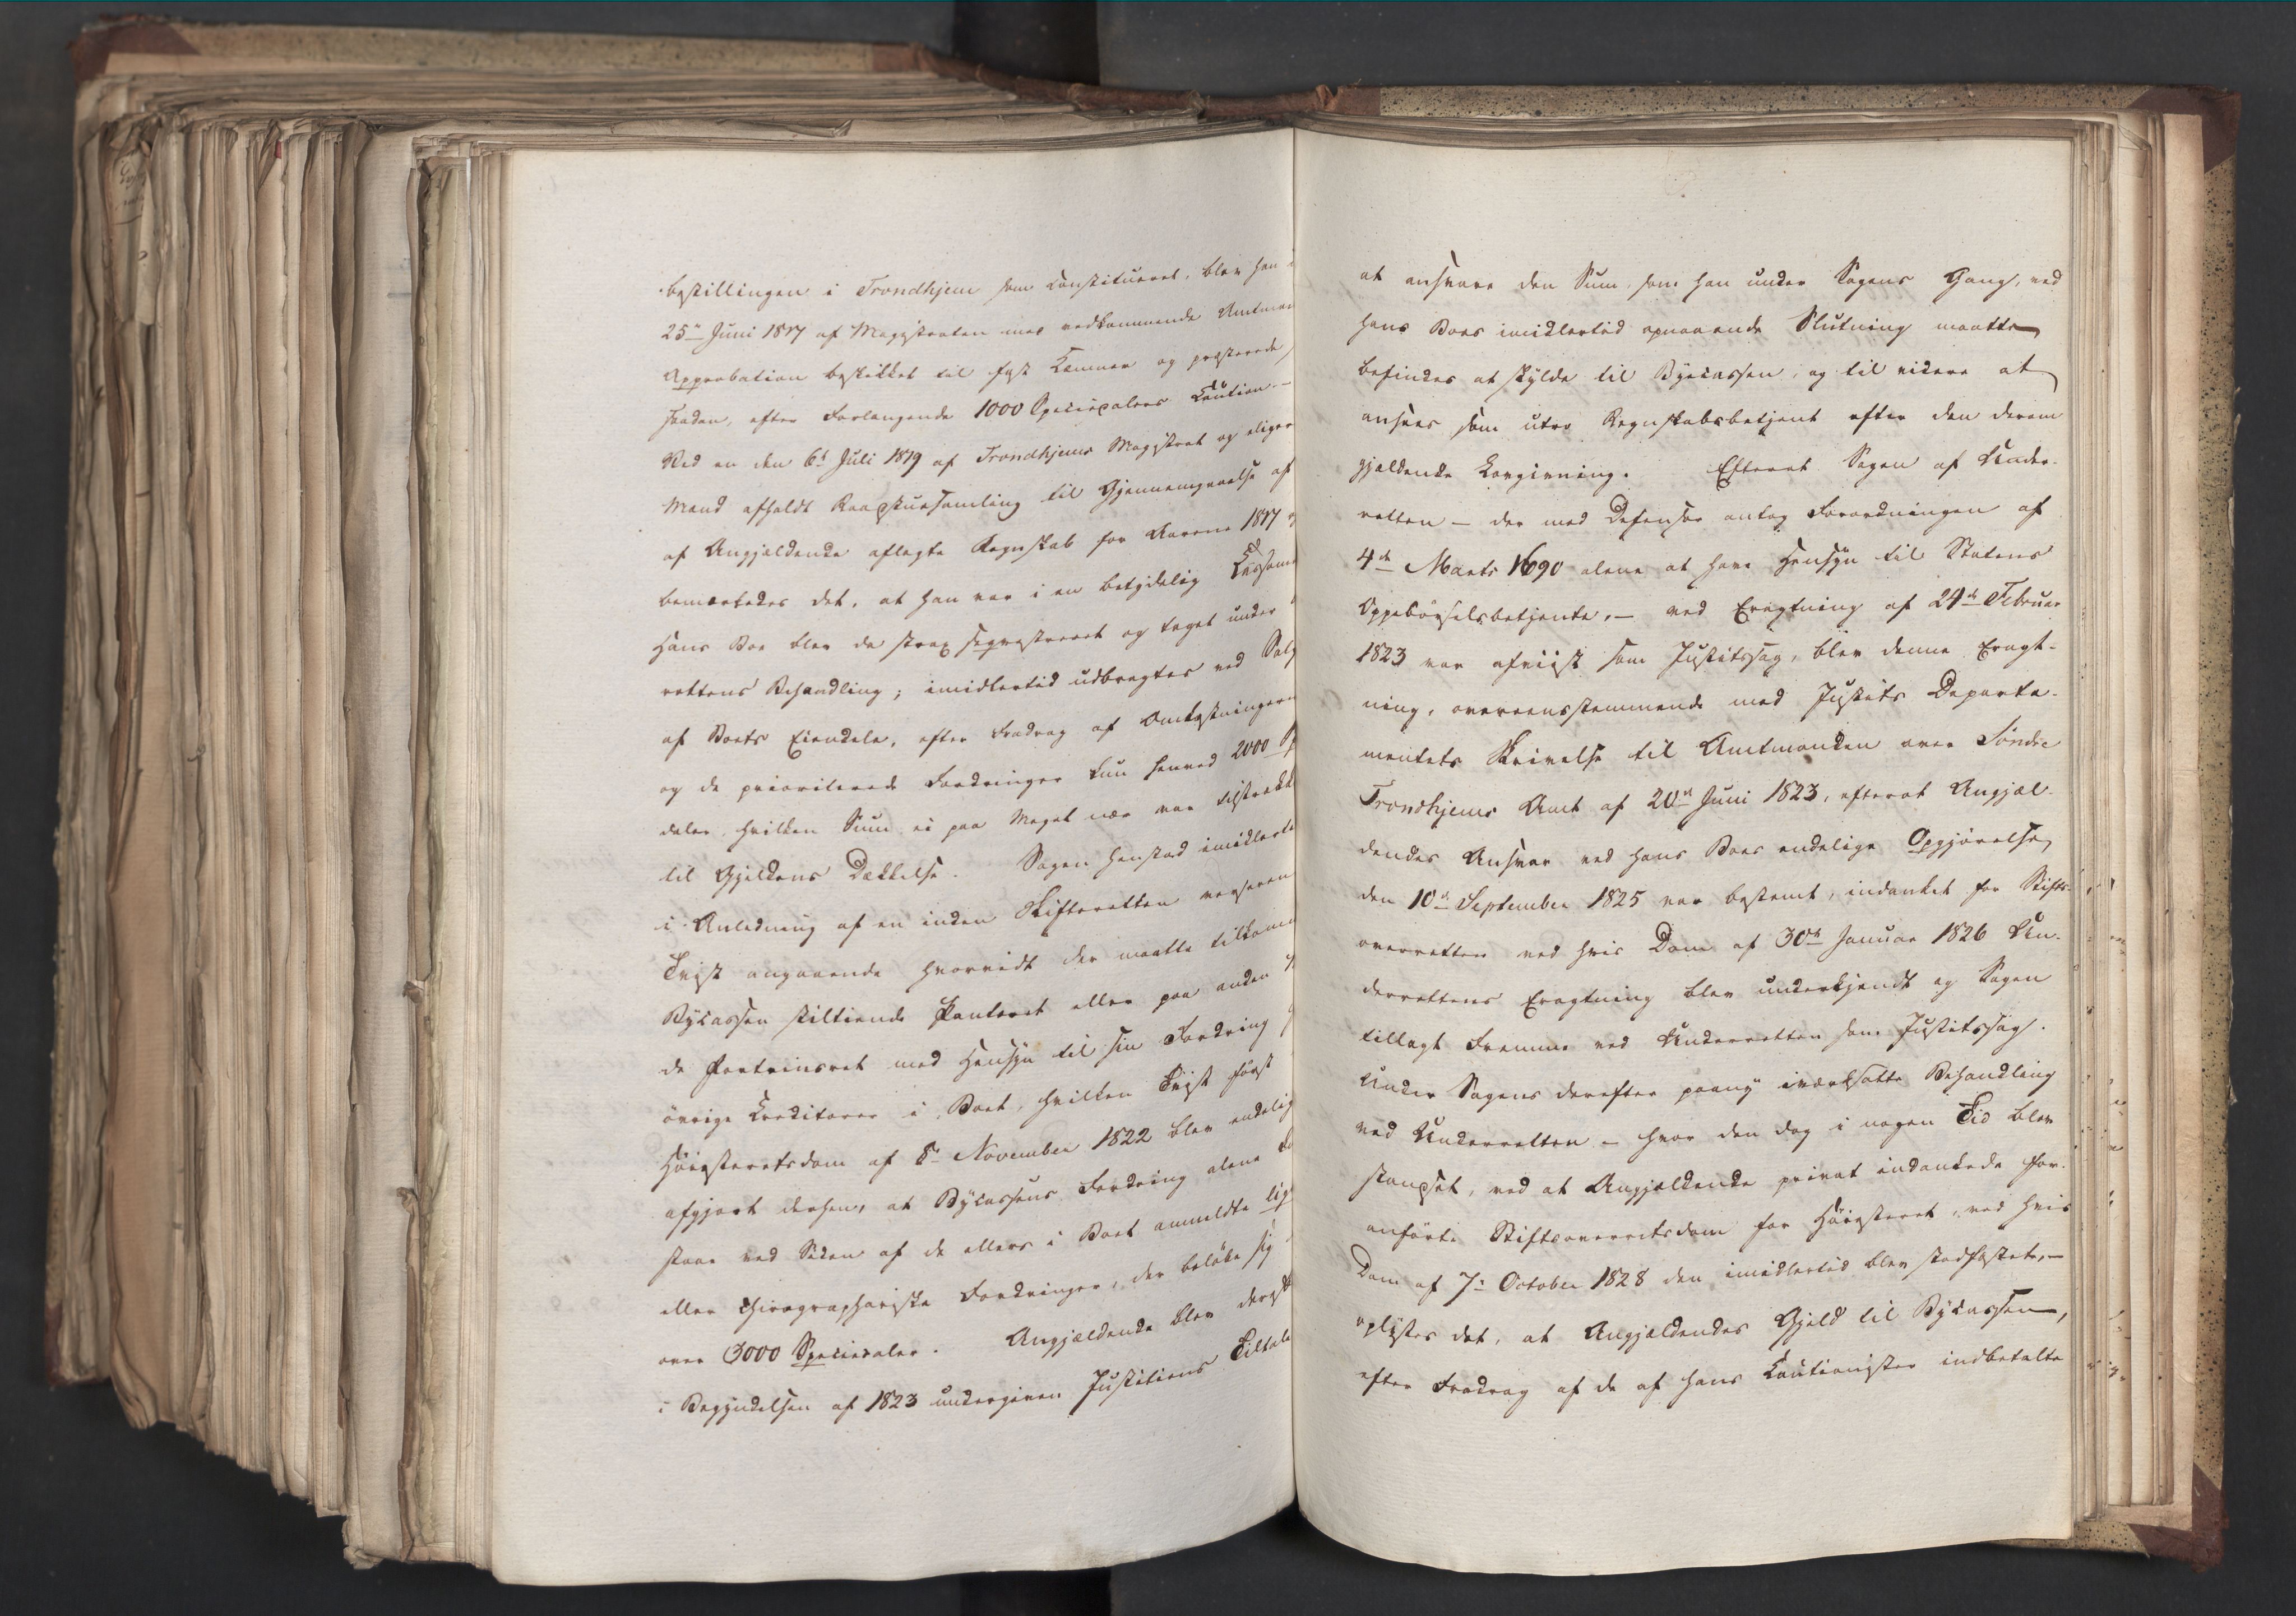 bestillingen i Trondhjem som Constitueret, blev han
25de Juni 1817 af Magistraten med vedkommende Amtmæn
Approbation beskikket til fast Kæmner og præsterede
saadan, efter Forlangende 1000 Speciesdalers Caution.
Ved en den 6te Juli 1819 af Trondhjems Magistrat og eliger
Mænd afholdt Raadstuesamling til Gjennemgaaelse af
af Angjældende aflagte Regnskab for Aarene 1817
bemærkedes det, at han var i en betydelig Cassam
Hans Boe blev da strax seqvestreret og taget under
rettens Behandling; imidlertid udbragtes ved Salg
af Boets Eiendele, efter Fradrag af Omkostningern
og de prioriterede Fordringer kun henved 2000 Sp
daler, hvilken Sum ei paa Meget nær var tilstrækk
til Gjeldens Dækkelse. Sagen henstod imidlerti
i Anledning af en inden Skifteretten verseren
Tvist angaaende hvorvidt der maatte tilkomm
Bycassen stiltiende Panteret eller paa anden
de Fortrinsret med Hensyn til sin Fordring
øvrige Creditorer i Boet, hvilken Tvist først
Høiesteretsdom af 8de November 1822 blev endelig
afgjort derhen, at Bycassens Fordring alene
staae ved Siden af de ellers i Boet anmeldte lig
eller chirographariske Fordringer, der beløbe sig
over 3000 Speciesdaler. Angjældende blev derpaa
i Begyndelsen af 1823 undergiven Justitiens Tiltale
at ansvare den Sum, som han under Sagens Gang, ved
hans Boes imidlertid opnaaende Slutning maatte
befindes at skylde til Byecassen, og til videre at
ansees som utro Regnskabsbetjent efter den derom
gjældende Lovgivning. Efterat Sagen af Under-
retten – der med Defensor antog Forordningen af
4de Marts 1690 alene at have Hensyn til Statens
Oppebørselsbetjente, – ved Eragtning af 24de Februar
1823 var afviist som Justitssag, blev denne Eragt-
ning, overeensstemmende med Justits Departe-
mentets Skrivelse til Amtmanden over Søndre
Trondhjems Amt af 20de Juni 1823, efterat Angjæl-
dendes Ansvar ved hans Boes endelige Opgjørelse
den 10de September 1825 var bestemt, indanket for Stifts-
overretten ved hvis Dom af 30te Januar 1826 Un-
derrettens Eragtning blev underkjendt og Sagen
tillagt Fremme ved Underretten som Justitssag.
Under Sagens derefter paany iværksatte Behandling
ved Underretten – hvor den dog i nogen Tid blev
standset, ved at Angjældende privat indankede for-
anførte Stiftsoverretsdom for Høiesteret, ved hvis
Dom af 7de October 1828 den imidlertid blev stadfæstet, –
oplystes det, at Angjældendes Gjeld til Bycassen,
efter Fradrag af de af hans Cautionister indbetalte